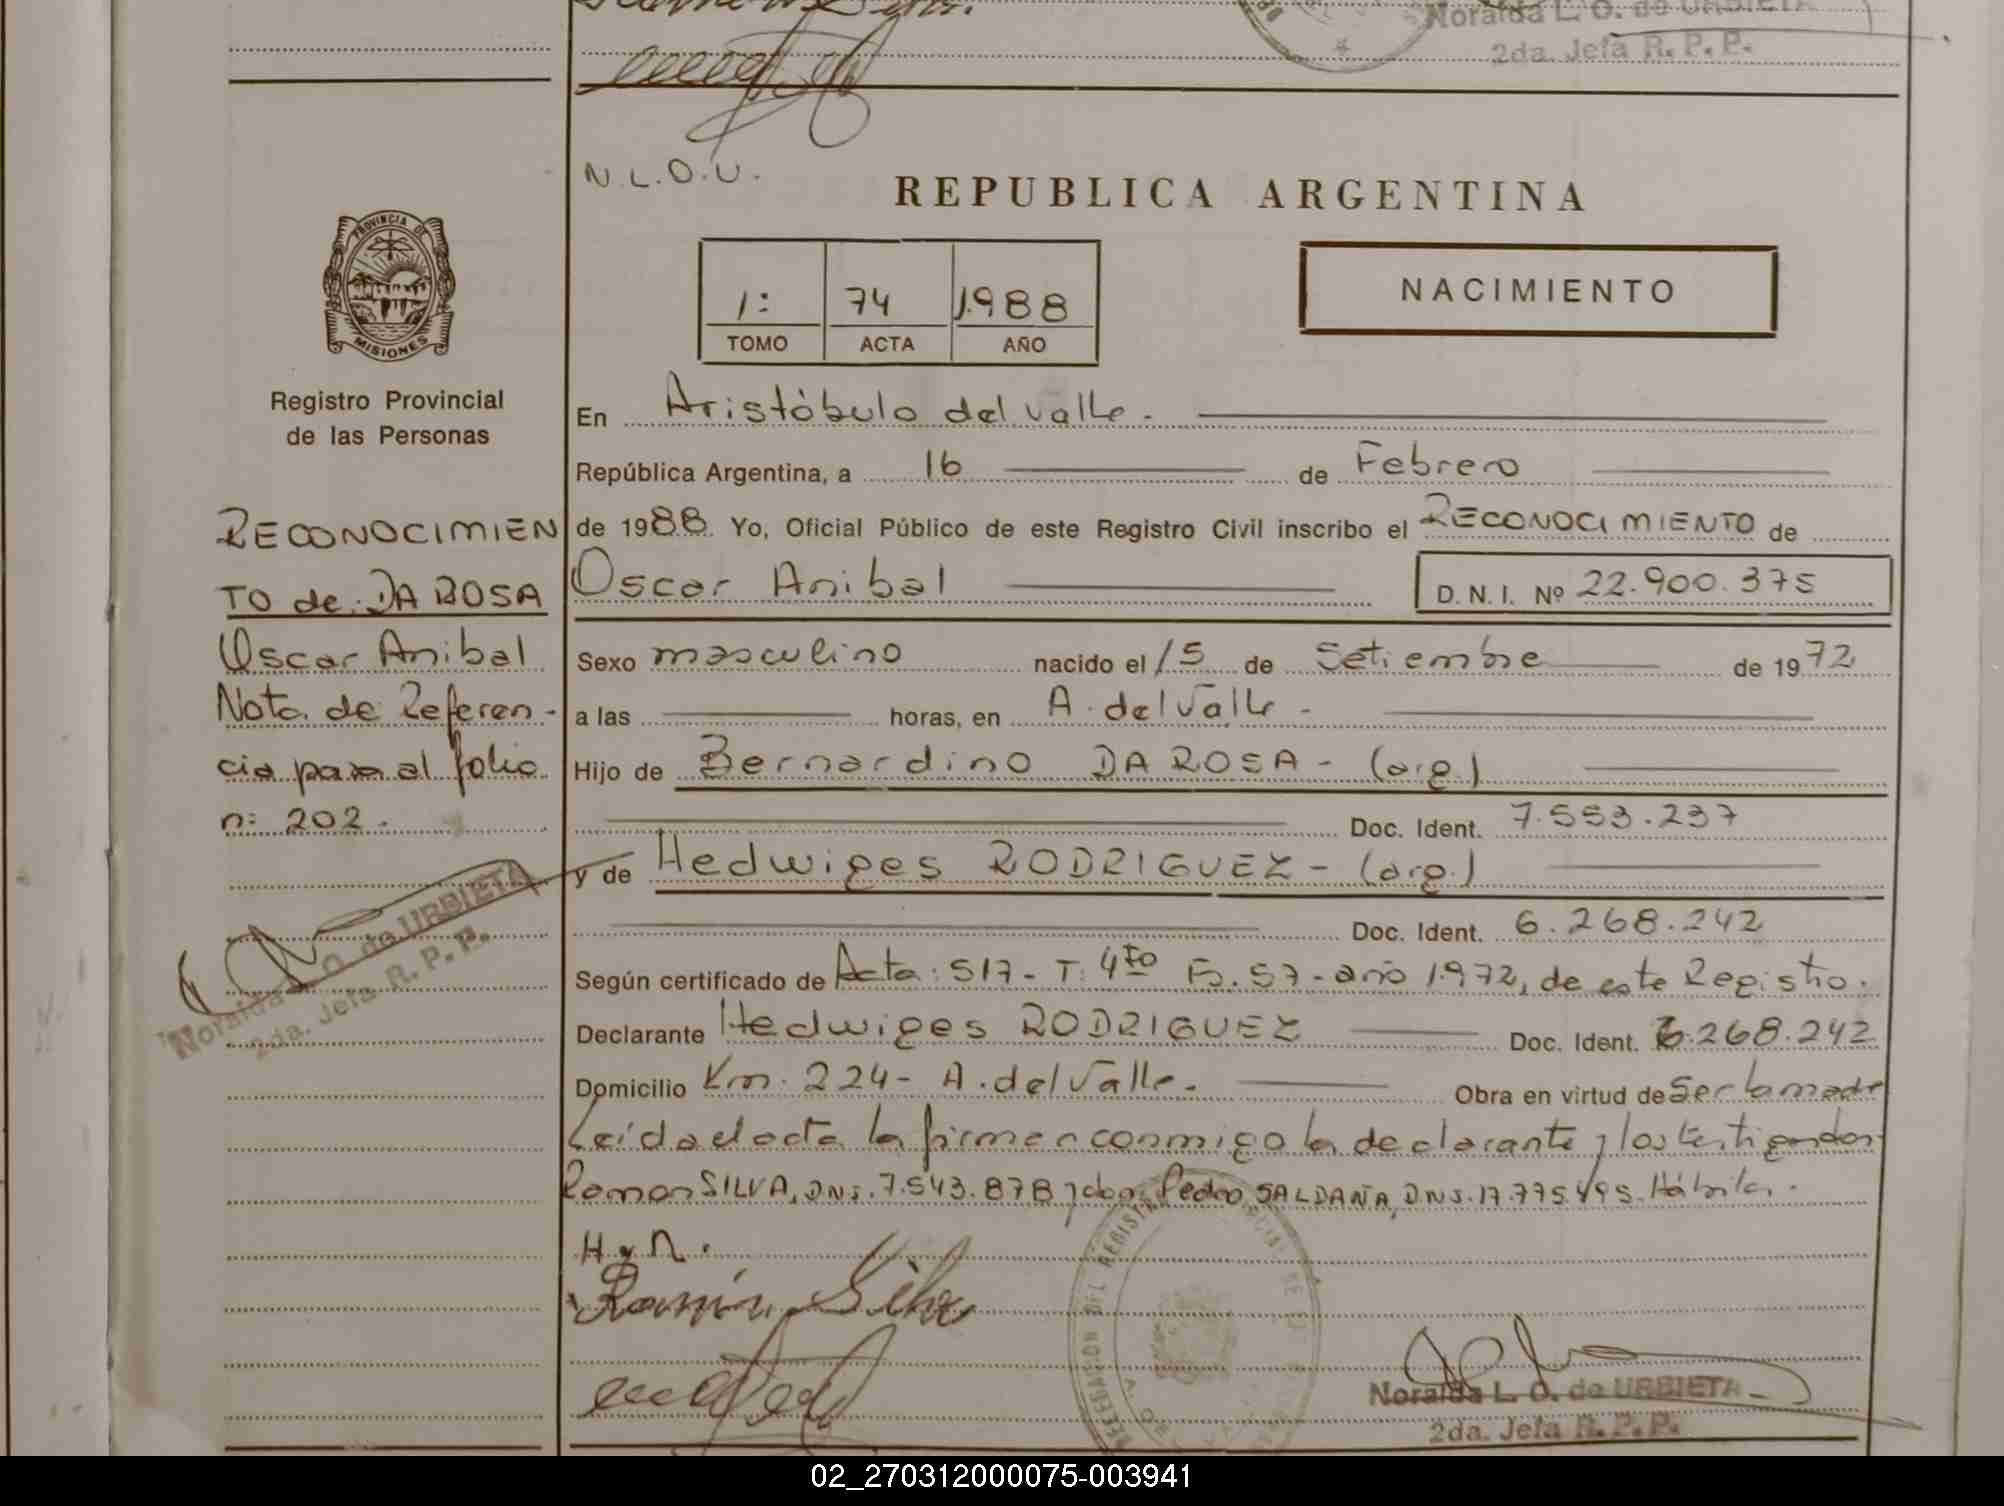 Noralda L. O. de URBIETA
2da. Jefa R. P. P.
N.L.O.U.
REPUBLICA ARGENTINA
PROVINCIA DE
MISIONES
1: 74 1.988
TOMO ACTA AÑO
NACIMIENTO
Registro Provincial
de las Personas
En Aristóbulo del valle.
República Argentina, a 16 de Febrero
de 1988. Yo, Oficial Público de este Registro Civil inscribo el RECONOCIMIENTO de
Oscar Anibal D. N. I. Nº 22.900.375
Sexo masculino nacido el 15 de Setiembre de 1972
a las horas, en A. del Valle -
Hijo de Bernardino DA ROSA - (arg.)
Doc. Ident. 7.553.237
y de Hedwiges RODRIGUEZ - (arg.)
Doc. Ident. 6.268.242
Según certificado de Acta: 517 - T: 4to Fo. 57 - año 1.972, de este Registro.
Declarante Hedwiges RODRIGUEZ Doc. Ident. 6.268.242
Domicilio Km. 224 - A. del Valle. Obra en virtud de Ser la madre
Leída el acta la firman conmigo la declarante y los testigos don
Ramon SILVA, DNI. 7.543.878 y don Pedro SALDAÑA, DNI. 17.775.495. Hábiles.
H y R.
Ramón Silva
Noralda L. O. de URBIETA
2da. Jefa R. P. P.
RECONOCIMIEN
TO de: DA ROSA
Oscar Anibal
Nota de Referen-
cia pasa al folio
n: 202.
Noralda O. de URBIETA
2da. Jefa R. P. P.
02_270312000075-003941